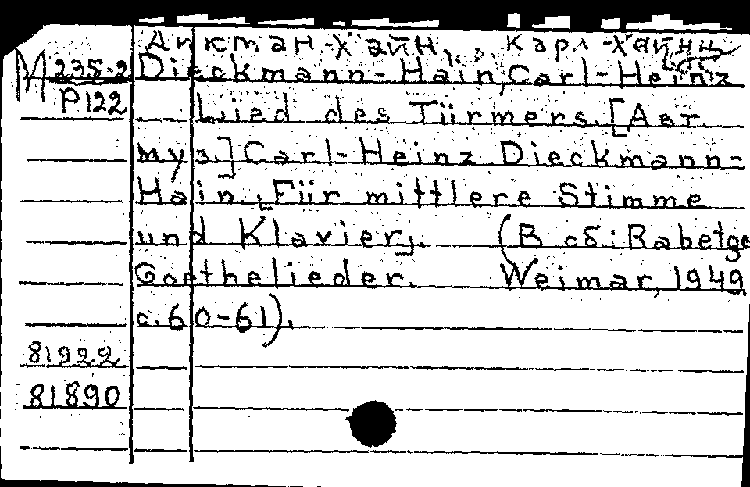 Дикман-Хайн, Карл-Хайнц
М 235-2 Dieckmann-Hain, Carl-Heinz
P122 Lied des Türmers. [Авт.
муз.] Carl-Heinz Dieckmann-
Hain. [Für mittlere Stimme
und Klavier]. (В сб: Rabetge
Goethelieder. Weimar, 1949
с. 60-61).
81922
81890